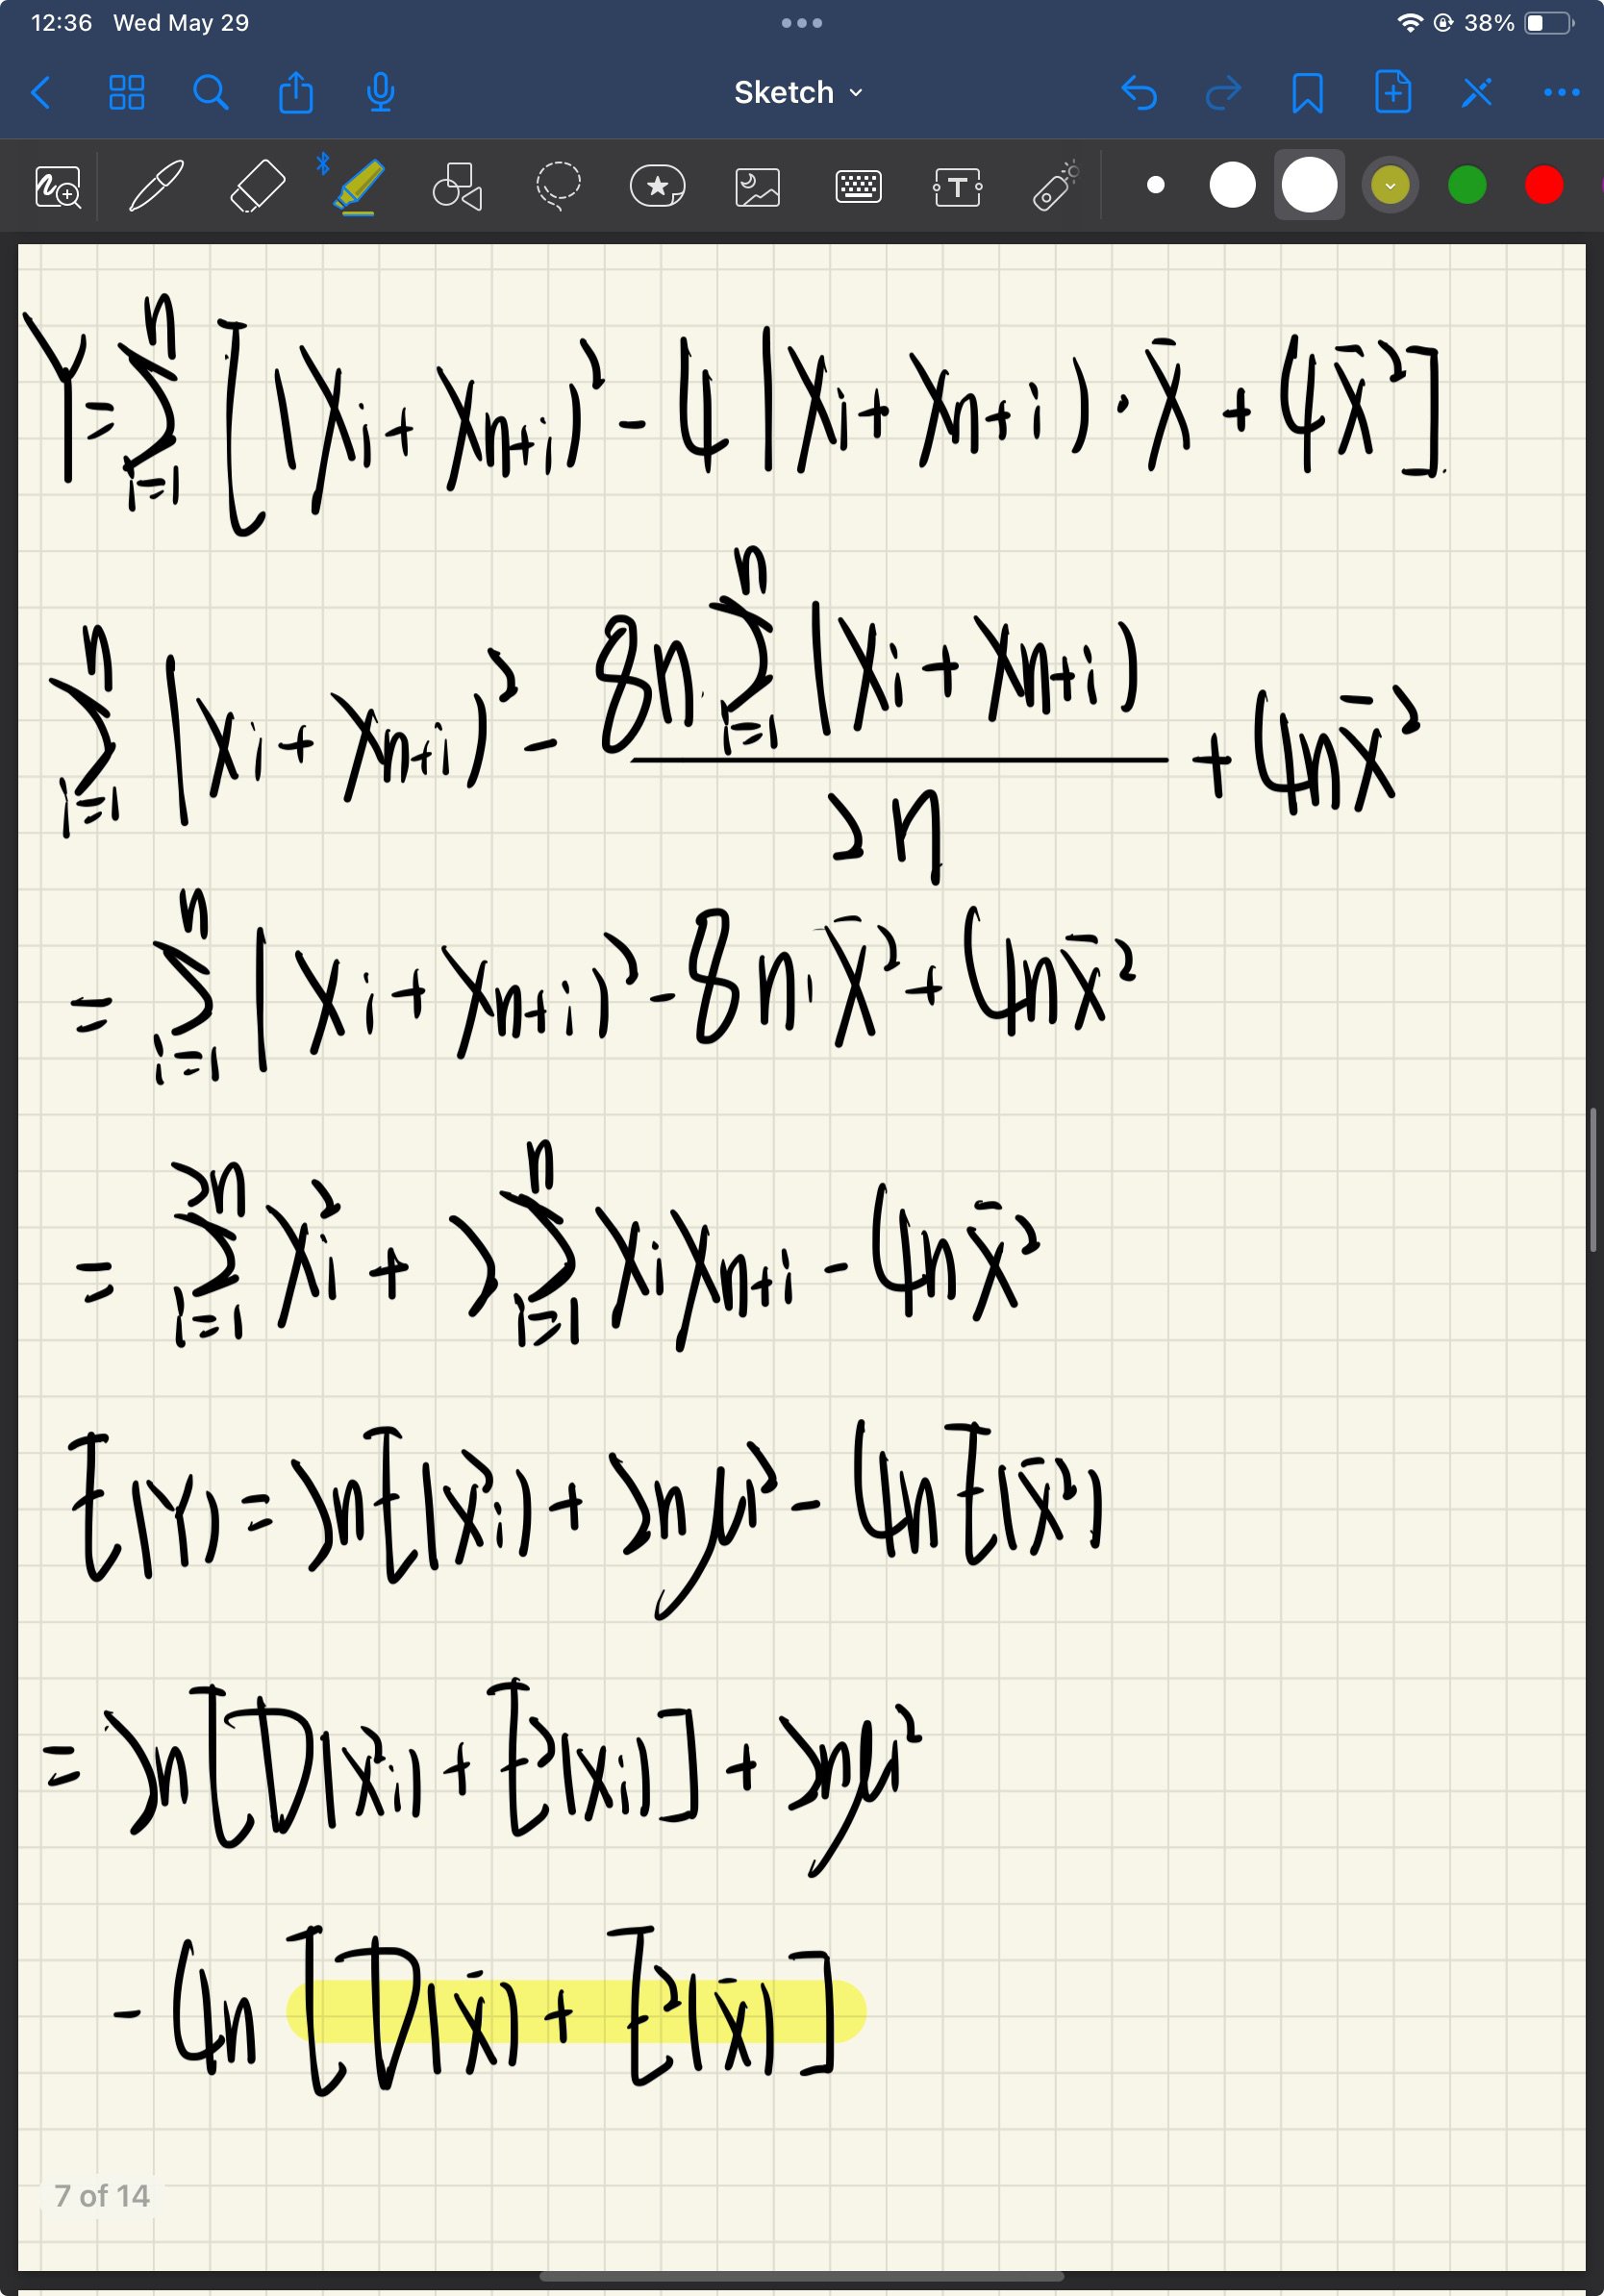 12:36 Wed May 29 38%
Sketch
Y = ∑_{i=1}^{n} [(Xi + Xn+i)² - 4(Xi + Xn+i)·X̄ + 4X̄²]
∑_{i=1}^{n} (Xi + Xn+i)² - 8n·∑_{i=1}^{n} (Xi + Xn+i) / 2n + 4nX̄²
= ∑_{i=1}^{n} (Xi + Xn+i)² - 8n·X̄² + 4nX̄²
= ∑_{i=1}^{2n} Xi² + 2∑_{i=1}^{n} XiXn+i - 4nX̄²
E(Y) = 2nE(Xi²) + 2nμ² - 4nE(X̄²)
= 2n[D(Xi²) + E²(Xi)] + 2nμ²
- 4n[D(X̄) + E²(X̄)]
7 of 14